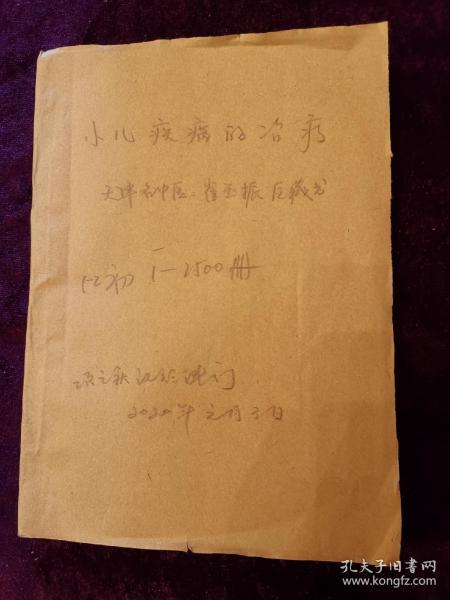 小儿疾病的治疗
天津名中医:崔玉振 医藏书
52初 1-2500册
记于津门
2020年元月3日
孔夫子旧书网
www.kongfz.com